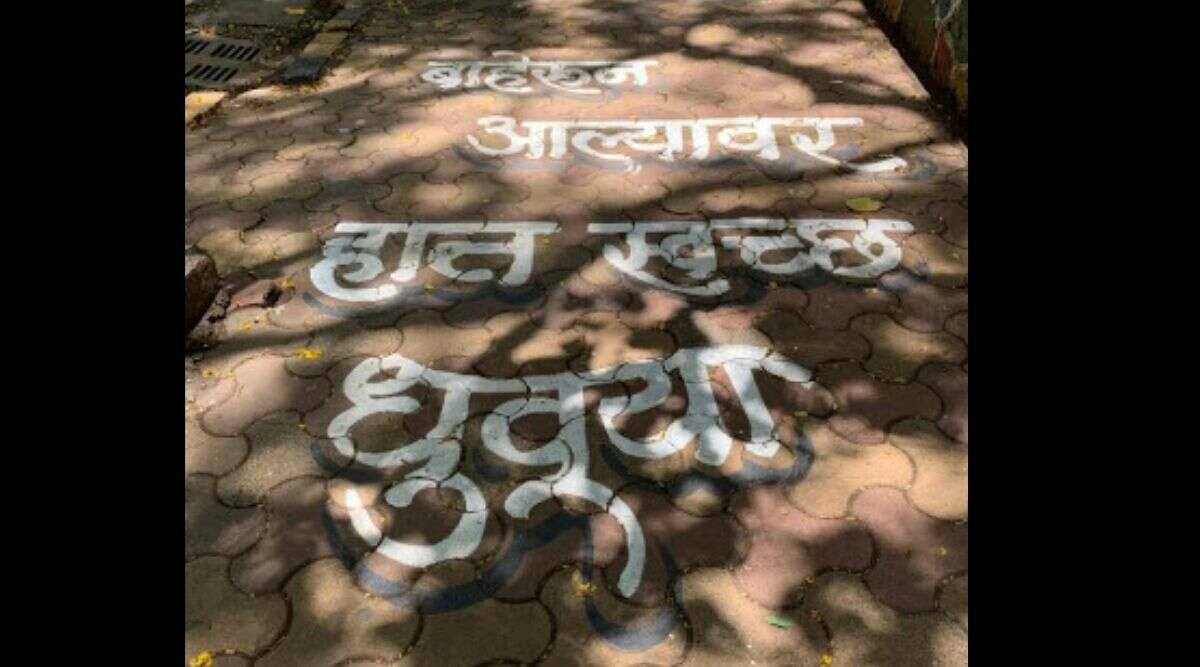 बाहेरून
आल्यावर
हात स्वच्छ
धुवूया